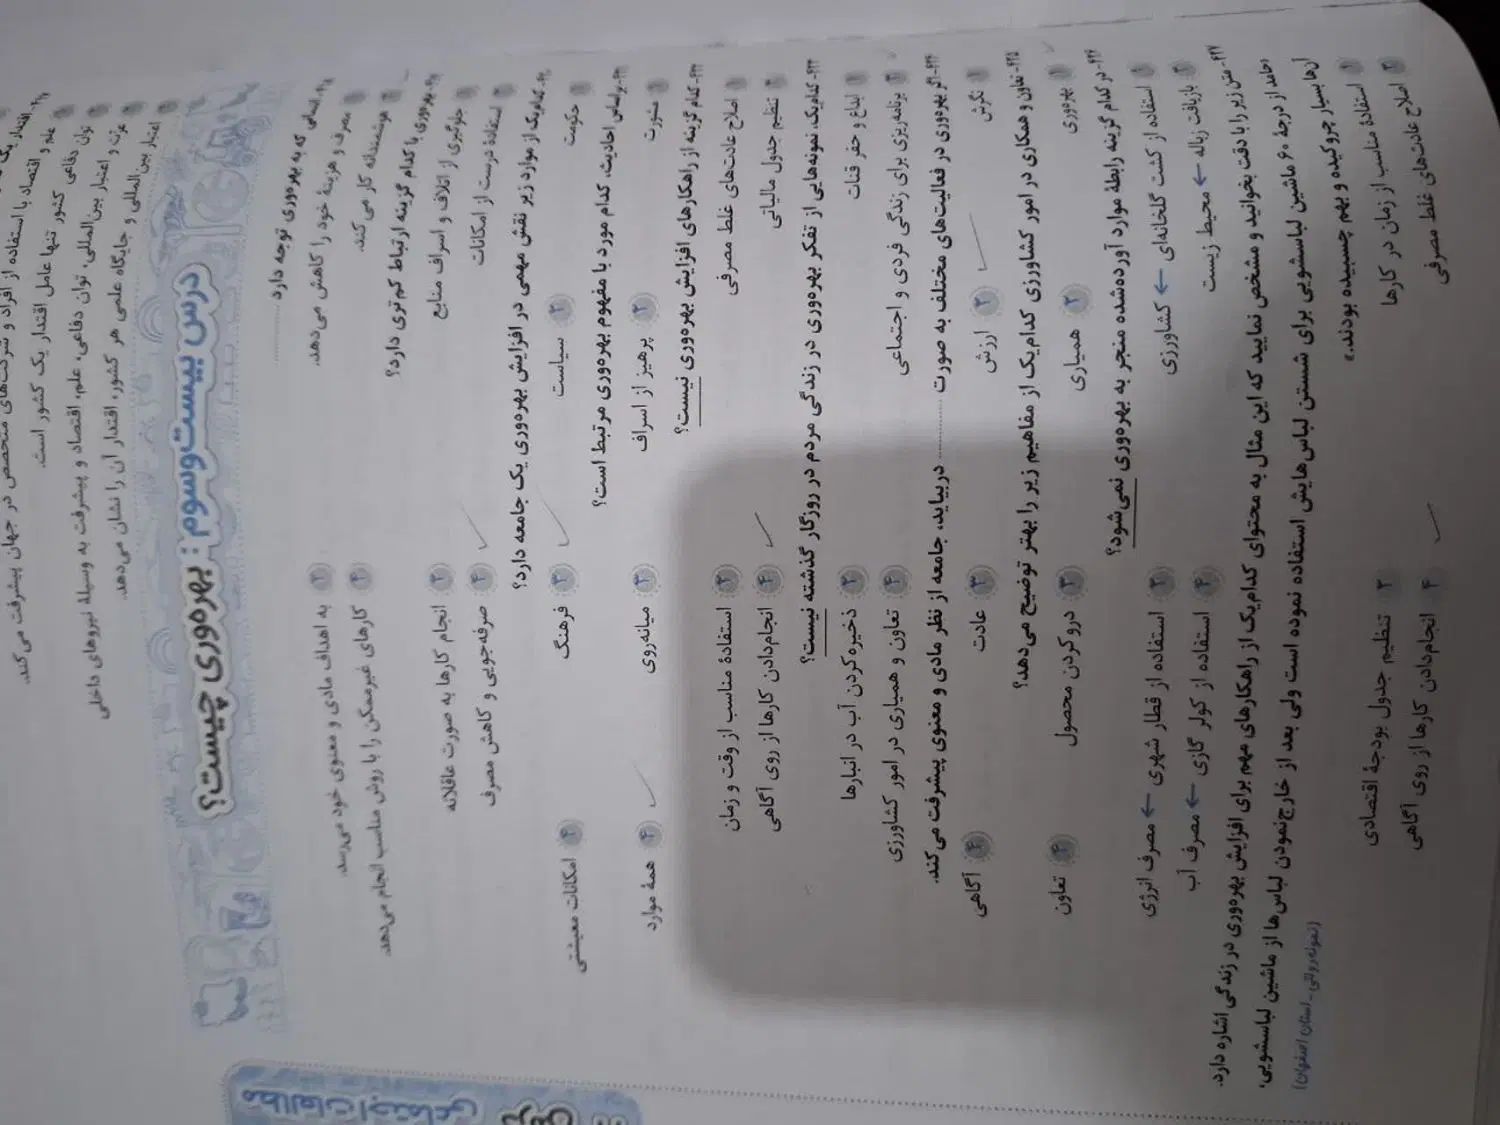 اعتبار بین‌المللی و جایگاه علمی هر کشور، اقتدار آن را نشان می‌دهد.
عزت و اعتبار بین‌المللی، توان دفاعی، علم، اقتصاد و پیشرفت به وسیلهٔ نیروهای داخلی
توان دفاعی کشور تنها عامل اقتدار یک کشور است.
علم و اقتصاد با استفاده از افراد و شرکت‌های متخصص در جهان پیشرفت می‌کند.
درس بیست‌وسوم: بهره‌وری چیست؟
مطالعات اجتماعی
انسانی که به بهره‌وری توجه دارد ..........
۱ مصرف و هزینهٔ خود را کاهش می‌دهد. ۲ به اهداف مادی و معنوی خود می‌رسد.
۳ هوشمندانه کار می‌کند. ۴ کارهای غیرممکن را با روش مناسب انجام می‌دهد.
بهره‌وری با کدام گزینه ارتباط کم‌تری دارد؟
۱ جلوگیری از اتلاف و اسراف منابع ۲ انجام کارها به صورت عاقلانه
۳ استفادهٔ درست از امکانات ۴ صرفه‌جویی و کاهش مصرف
کدام‌یک از موارد زیر نقش مهمی در افزایش بهره‌وری یک جامعه دارد؟
۱ حکومت ۲ سیاست ۳ فرهنگ ۴ امکانات معیشتی
براساس احادیث، کدام مورد با مفهوم بهره‌وری مرتبط است؟
۱ مشورت ۲ پرهیز از اسراف ۳ میانه‌روی ۴ همهٔ موارد
کدام گزینه از راهکارهای افزایش بهره‌وری نیست؟
۱ اصلاح عادت‌های غلط مصرفی ۲ استفادهٔ مناسب از وقت و زمان
۳ تنظیم جدول مالیاتی ۴ انجام‌دادن کارها از روی آگاهی
۶۲۳- کدام‌یک نمونه‌هایی از تفکر بهره‌وری در زندگی مردم در روزگار گذشته نیست؟
۱ ابداع و حفر قنات ۲ ذخیره‌کردن آب در انبارها
۳ برنامه‌ریزی برای زندگی فردی و اجتماعی ۴ تعاون و همیاری در امور کشاورزی
۶۲۴- اگر بهره‌وری در فعالیت‌های مختلف به صورت .......... دربیاید، جامعه از نظر مادی و معنوی پیشرفت می‌کند.
۱ نگرش ۲ ارزش ۳ عادت ۴ آگاهی
۶۲۵- تعاون و همکاری در امور کشاورزی کدام‌یک از مفاهیم زیر را بهتر توضیح می‌دهد؟
۱ بهره‌وری ۲ همیاری ۳ دروکردن محصول ۴ تعاون
۶۲۶- در کدام گزینه رابطهٔ موارد آورده‌شده منجر به بهره‌وری نمی‌شود؟
۱ استفاده از کشت گلخانه‌ای ← کشاورزی ۲ استفاده از قطار شهری ← مصرف انرژی
۳ بازیافت زباله ← محیط زیست ۴ استفاده از کولر گازی ← مصرف آب
۶۲۷- متن زیر را با دقت بخوانید و مشخص نمایید که این مثال به محتوای کدام‌یک از راهکارهای مهم برای افزایش بهره‌وری در زندگی اشاره دارد.
«حامد از درجهٔ ۶۰ ماشین لباسشویی برای شستن لباس‌هایش استفاده نموده است ولی بعد از خارج‌نمودن لباس‌ها از ماشین لباسشویی،
آن‌ها بسیار چروکیده و بهم چسبیده بودند.» (نمونه‌دولتی - استان اصفهان)
۱ استفادهٔ مناسب از زمان در کارها ۲ تنظیم جدول بودجهٔ اقتصادی
۳ اصلاح عادت‌های غلط مصرفی ۴ انجام‌دادن کارها از روی آگاهی